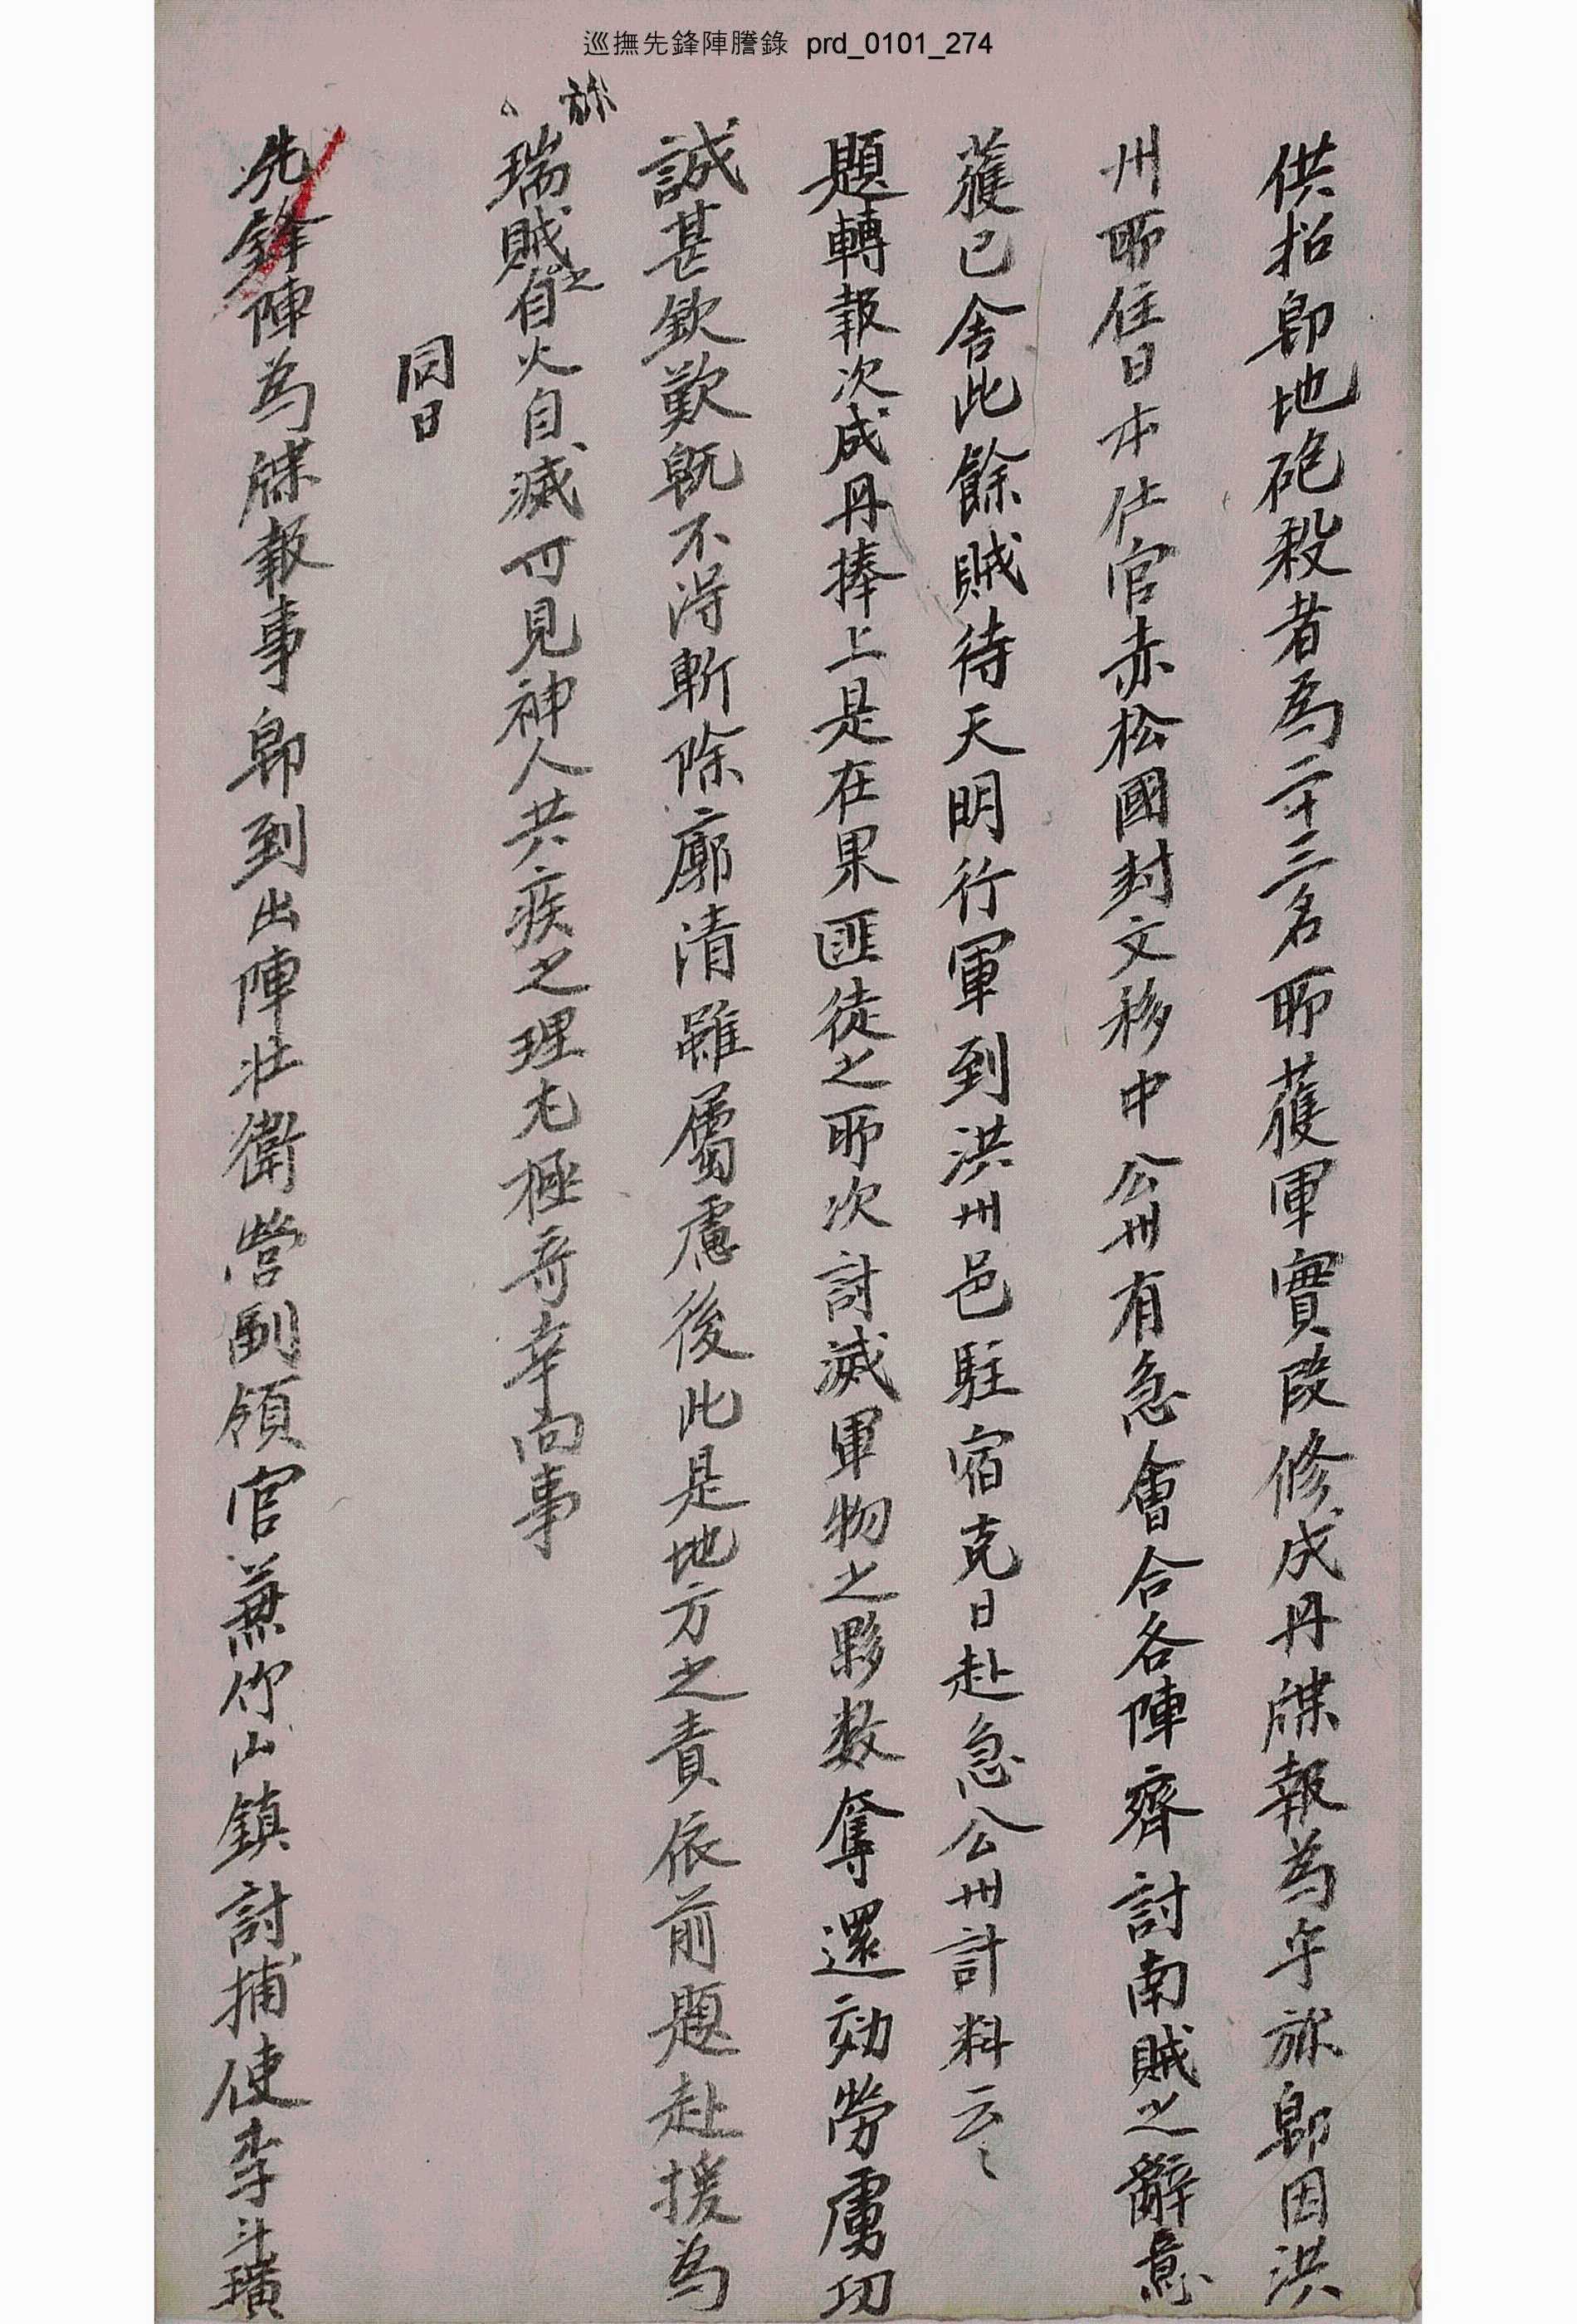 巡撫先鋒陣謄錄 prd_0101_274
供招卽地砲殺者爲二十三名所獲軍實段修成冊牒報爲乎旀卽因洪
州所住日本仕官赤松國封文移中公州有急會合各陣齊討南賊之辭意
蒦已舍此餘賊待天明行軍到洪州邑駐宿克日赴急公州計料云〻
題轉報次成冊捧上是在果匪徒之所次討滅軍物之夥數奪還効勞膚功
誠甚欽歎旣不得斬除廓清雖屬慮後此是地方之責依前題赴援爲旀
瑞賊之自火自滅可見神人共疾之理尤極奇幸向事
同日
先鋒陣爲牒報事卽到出陣壯衛營副領官兼竹山鎮討捕使李斗璜